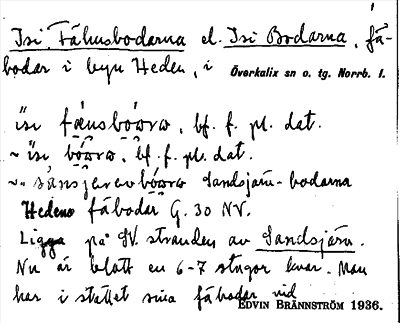 Isi Fähusbodarna el. Isi Bodarna, fä-
bodar i byn Heden, i Överkalix sn o. tg. Norrb. l.
bf. f. pl. dat.
bf. f. pl. dat.
Sandsjärv-bodarna
Hedens fäbodar G. 30 NV.
Ligga på SV. stranden av Sandsjärv.
Nu är blott en 6-7 stugor kvar. Man
har i stället sina fäbodar vid
EDVIN BRÄNNSTRÖM 1936.